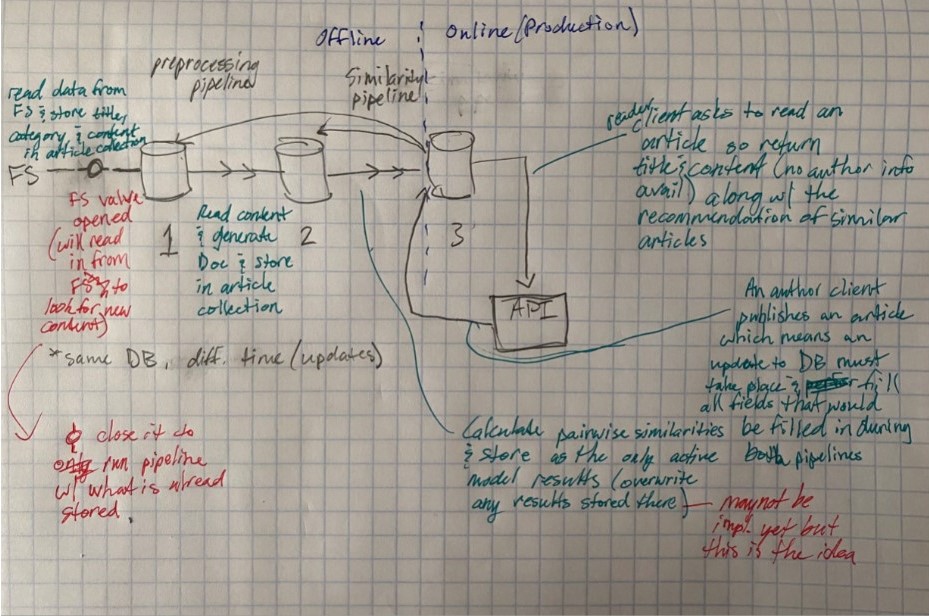 Offline
Online (Production)
preprocessing
pipeline
Similarity
pipeline
read data from
FS & store title,
category, & content
in article collection
FS
FS valve
opened
(will read
in from
FS to
look for new
content)
1
Read content
& generate
Doc & store
in article
collection
2
3
API
reader client asks to read an
article so return
title & content (no author info
avail) along w/ the
recommendation of similar
articles
An author client
publishes an article
which means an
update to DB must
take place & fill
all fields that would
be filled in during
both pipelines
*same DB, diff. time (updates)
close it to
only run pipeline
w/ what is alread
stored.
Calculate pairwise similarities
& store as the only active
model results (overwrite
any results stored there)
may not be
impl. yet but
this is the idea